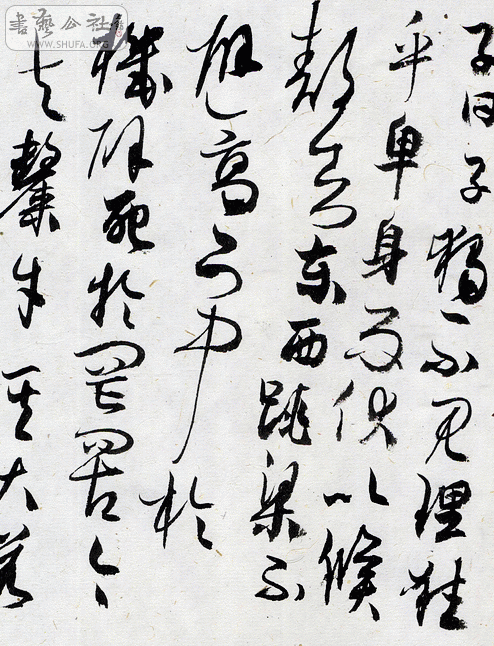 子曰子獨不見狸狌
乎卑身而伏以候
敖者東西跳梁不
避高下中於
機辟死於罔罟今
夫斄牛其大若
書藝公社
WWW.SHUFA.ORG